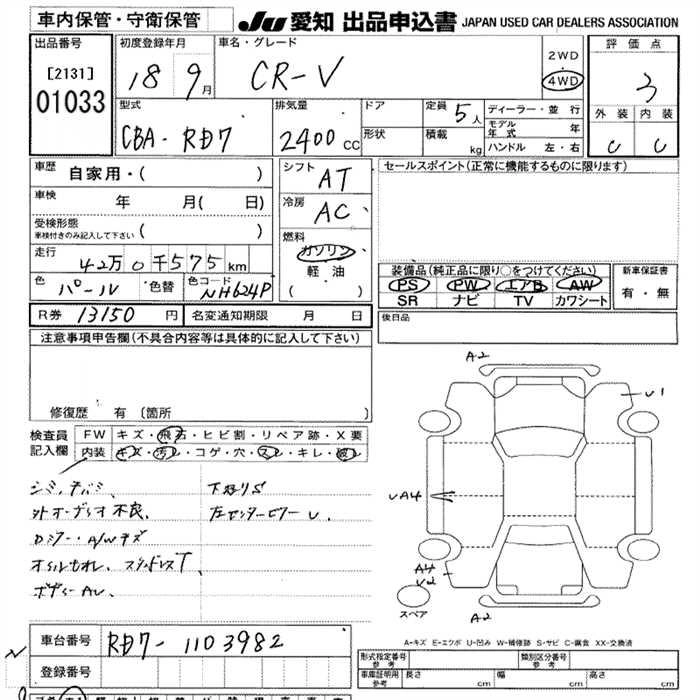 車内保管・守衛保管
JU 愛知 出品申込書 JAPAN USED CAR DEALERS ASSOCIATION
出品番号
[2131]
01033
初度登録年月
18 9月
車名・グレード
CR-V
2WD
4WD
評価点
3
外装 内装
C C
型式
CBA-RD7
排気量
2400 cc
ドア
形状
定員 5人
積載 kg
ディーラー・並行
モデル年式 年
ハンドル 左・右
車歴
自家用・( )
車検
年 月( 日)
受検形態
車検付きのみ記入して下さい ( )
走行
42万0千575km
色
パール
色替
色コード
NH624P
シフト
AT
冷房
AC
燃料
ガソリン
軽油
( )
セールスポイント(正常に機能するものに限ります)
装備品(純正品に限り○をつけてください)
PS PW エアB AW
SR ナビ TV カワシート
新車保証書
有・無
R券 13150 円
名変通知期限 月 日
後日品
注意事項申告欄(不具合内容等は具体的に記入して下さい)
修復歴 有 〔箇所 〕
検査員
記入欄
FW キズ・飛石・ヒビ割・リペア跡・X要
内装 キズ・汚レ・コゲ・穴・スレ・キレ・
シミ
外オーディオ不良、 左センターピラーU、
A/Wキズ
A2
U1
UA4
A4
A2
スペア
A-キズ E-エクボ U-凹み W-補修跡 S-サビ C-腐食 XX-交換済
車台番号
RD7-1103982
登録番号
形式指定番号
参考
類別区分番号
参考
車庫証明用
参考
長さ cm 幅 cm 高さ cm